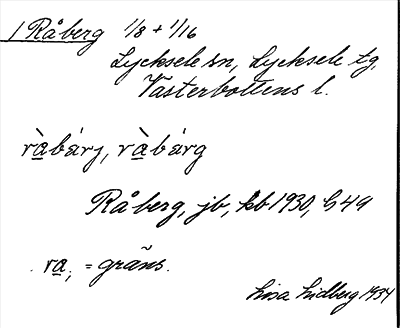 1 Råberg 1/8 + 1/16
Lycksele sn, Lycksele tg.
Västerbottens l.
ràbárj, ràbárg
Råberg, jb, kb 1930, G 49
ra, = gräns.
Lisa Lidberg 1934